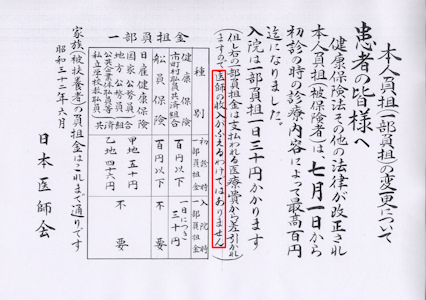 本人負担(一部負担)の変更について
患者の皆様へ
健康保険法その他の法律が改正され
本人負担(被保険者)は、七月一日から
初診の時の診療内容によって最高百円
迄になりました。
入院は一部負担一日三十円かかります
(但し右の一部負担金は支払われる医療費から差引かれ
ますので医師の収入がふえるわけではありません)
一部負担金
種別
初診時一部負担金
入院時一部負担金
健康保険
市町村職員共済組合
百円以下
一日につき三十円
船員保険
百円以下
不要
日雇健康保険
国家公務員
地方公務員
公共企業体等職員
私立学校教職員
共済組合
甲地 五十円
乙地 四十六円
不要
家族(被扶養者)の負担金はこれまで通りです
昭和三十二年六月
日本医師会